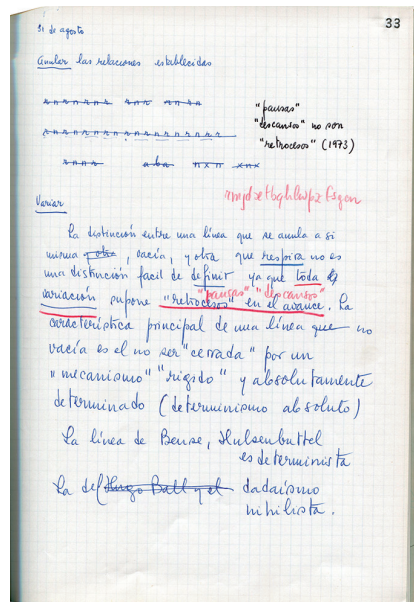 33
31 de agosto
Anular las relaciones establecidas
"pausas"
"descansos" no son
"retrocesos" (1973)
Variar
La distinción entre una línea que se anula a sí
misma y otra, vacía, y otra que respira no es
una distinción facil de definir ya que toda
"pausas" "descansos"
variación supone "retrocesos" en el avance. La
característica principal de una línea que no
vacía es el no ser "cerrada" por un
"mecanismo" "rigido" y absolutamente
determinado (determinismo absoluto)
La línea de Bense, Hulsenbuttel
es determinista
La de Hugo Ball y el dadaísmo
nihilista.